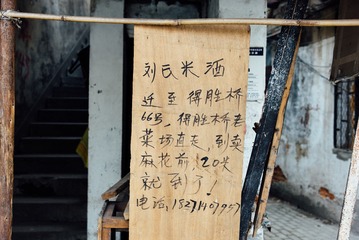 刘氏米酒
迁至得胜桥
66号,得胜桥老
菜场直走,到卖
麻花前,20米
就到了!
电话,18271407957